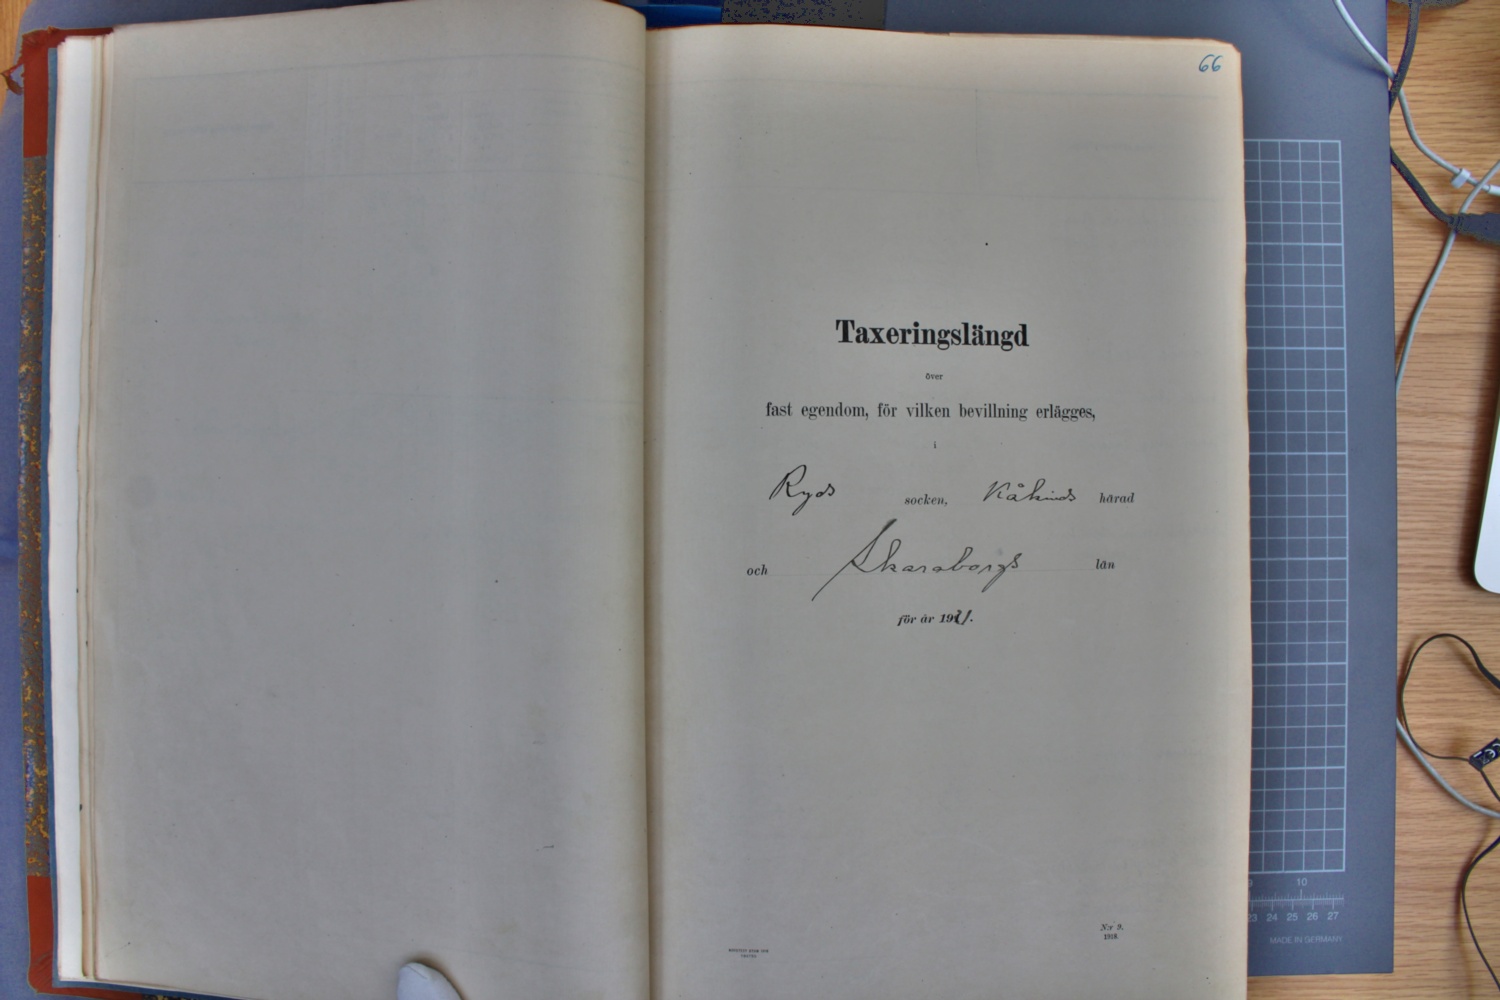 66
Taxeringslängd
över
fast egendom, för vilken bevillning erlägges,
i
Ryds socken, Kåkinds härad
och Skaraborgs län
för år 1921.
N:r 9.
1918.
10
23 24 25 26 27
MADE IN GERMANY